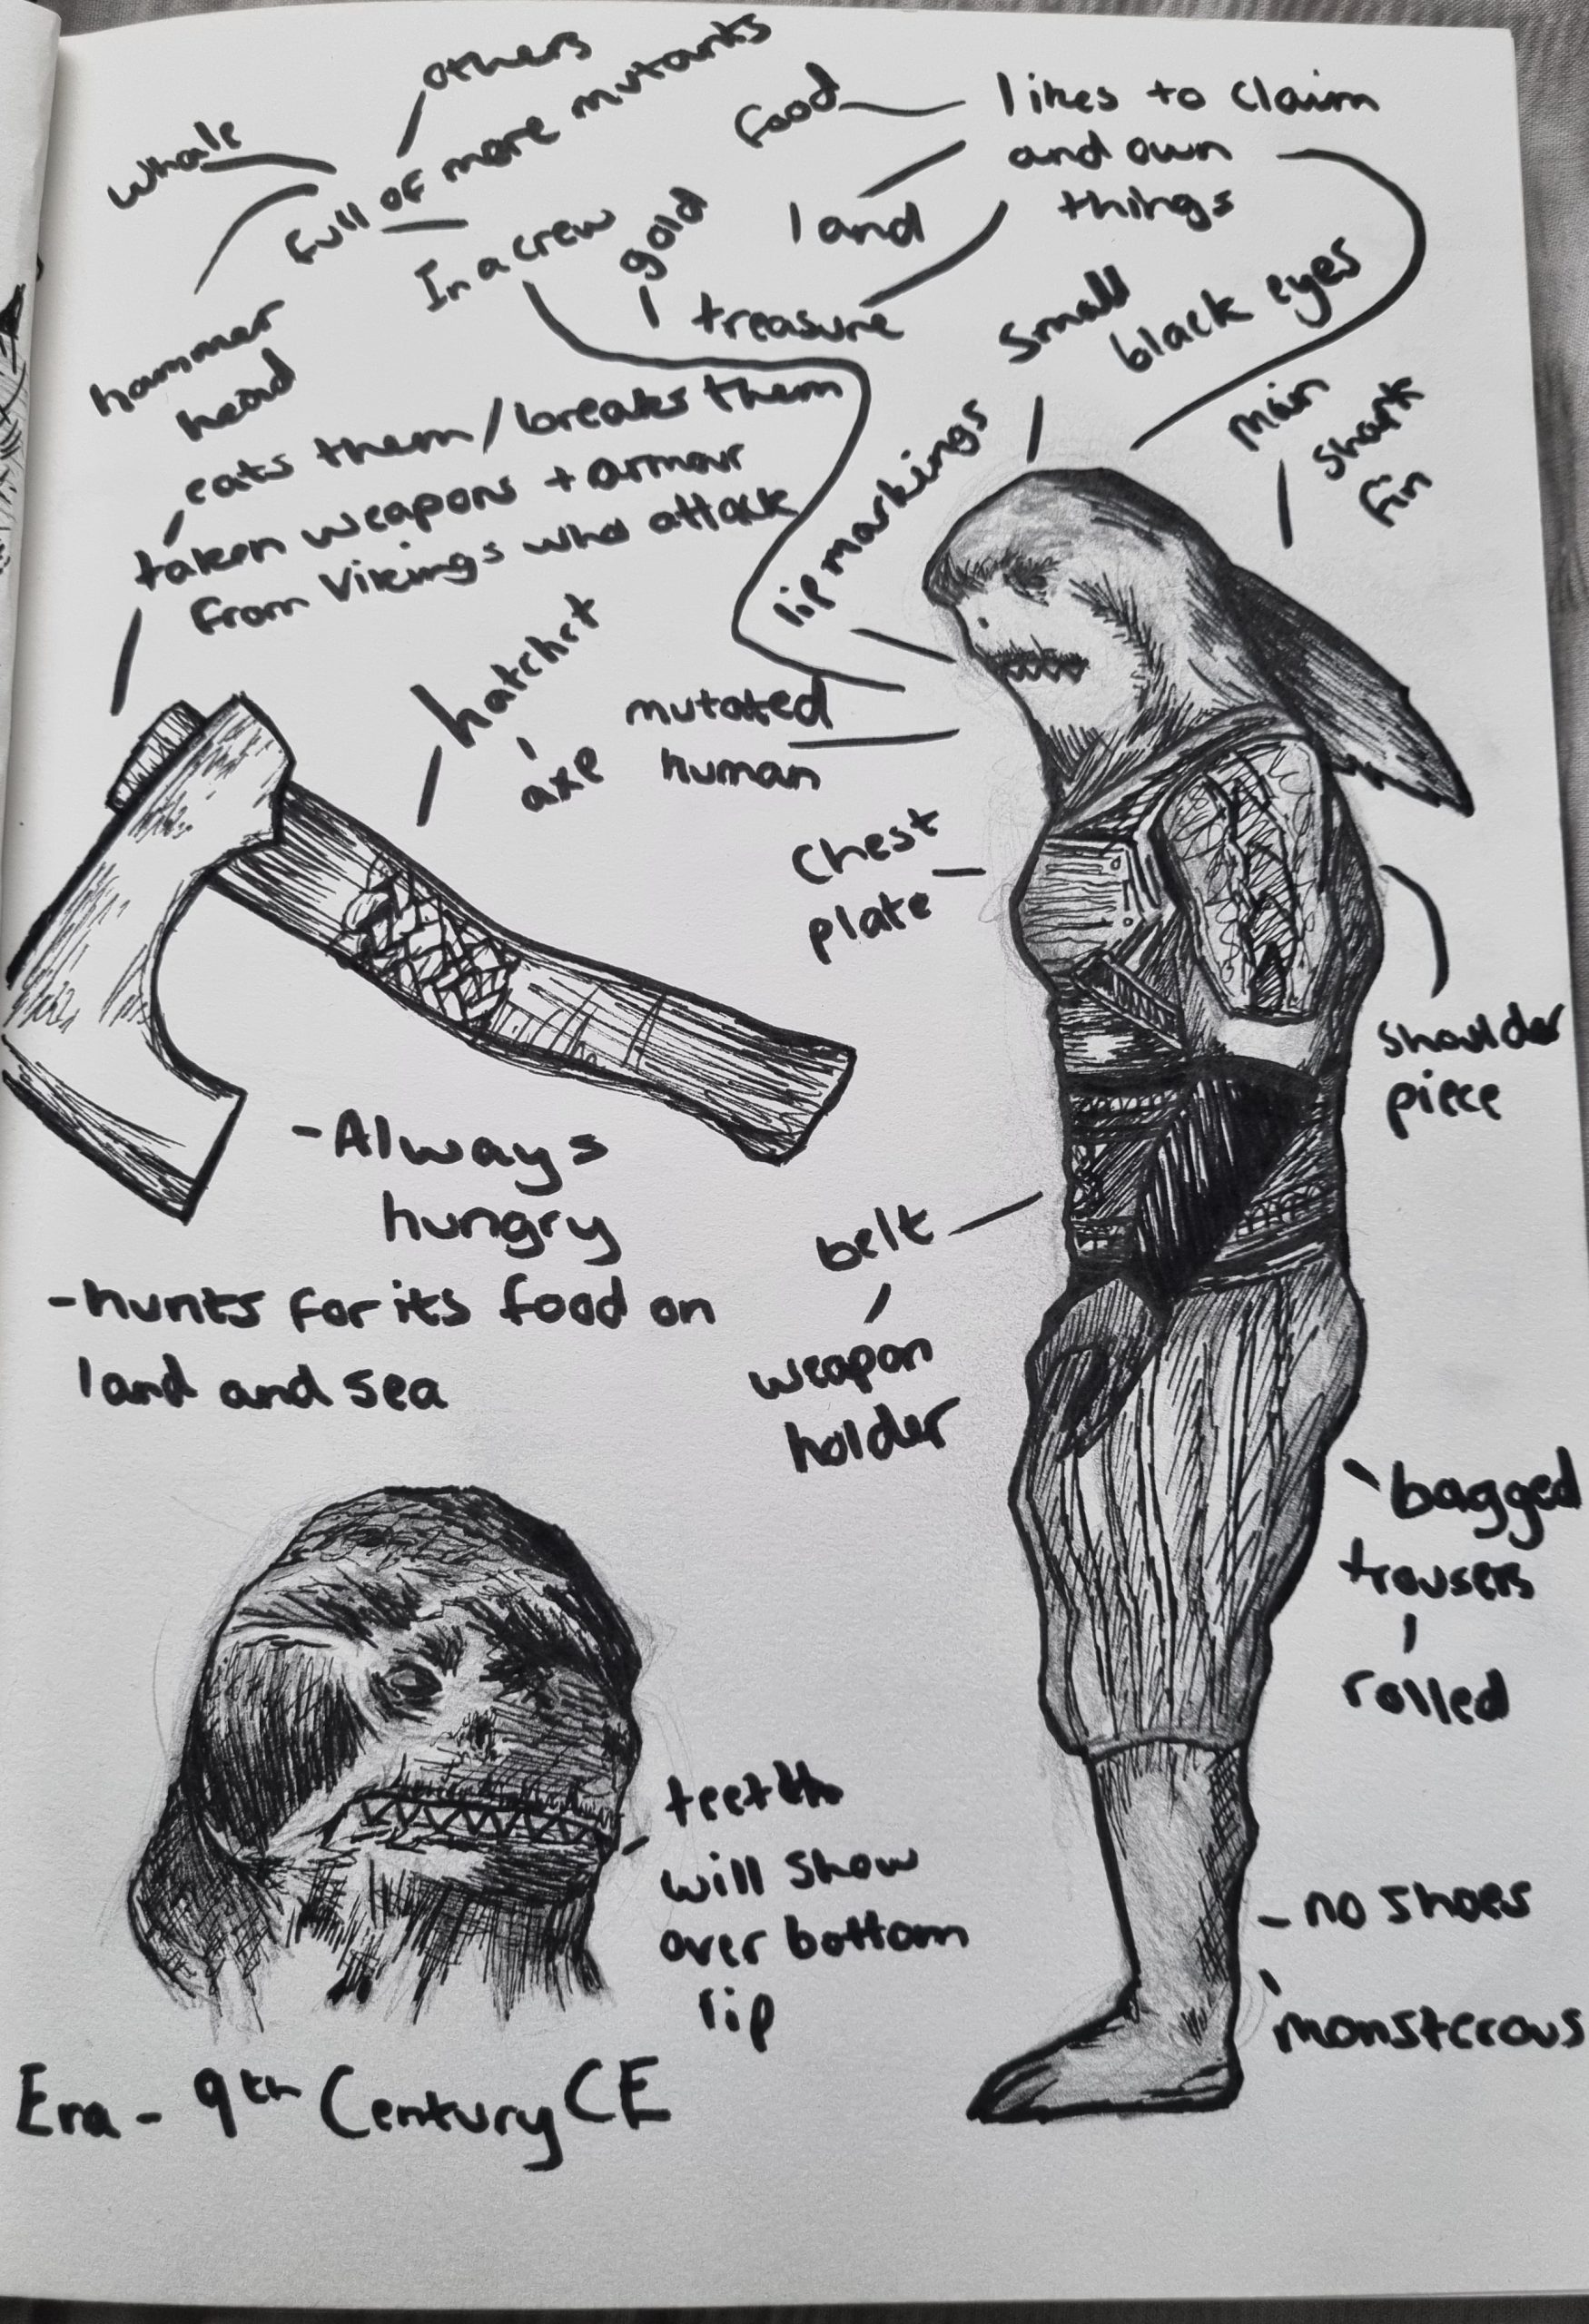 others
whale
full of more mutants
In a crew
hammer
head
food
likes to claim
and own
things
land
gold
treasure
small
black eyes
main
shark
fin
eats them/breaks them
taken weapons + armour
from Vikings who attack
lip markings
hatchet
axe
mutated
human
chest
plate
shoulder
piece
-Always
hungry
-hunts for its food on
land and sea
belt
weapon
holder
bagged
trousers
rolled
teetth
will show
over bottom
lip
-no shoes
monsterous
Era - 9th Century CE